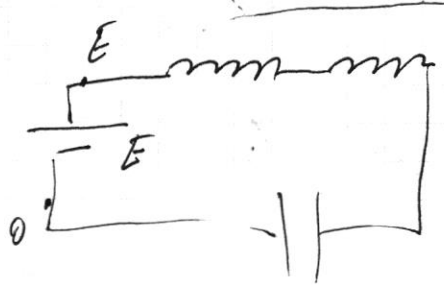 E
E
0